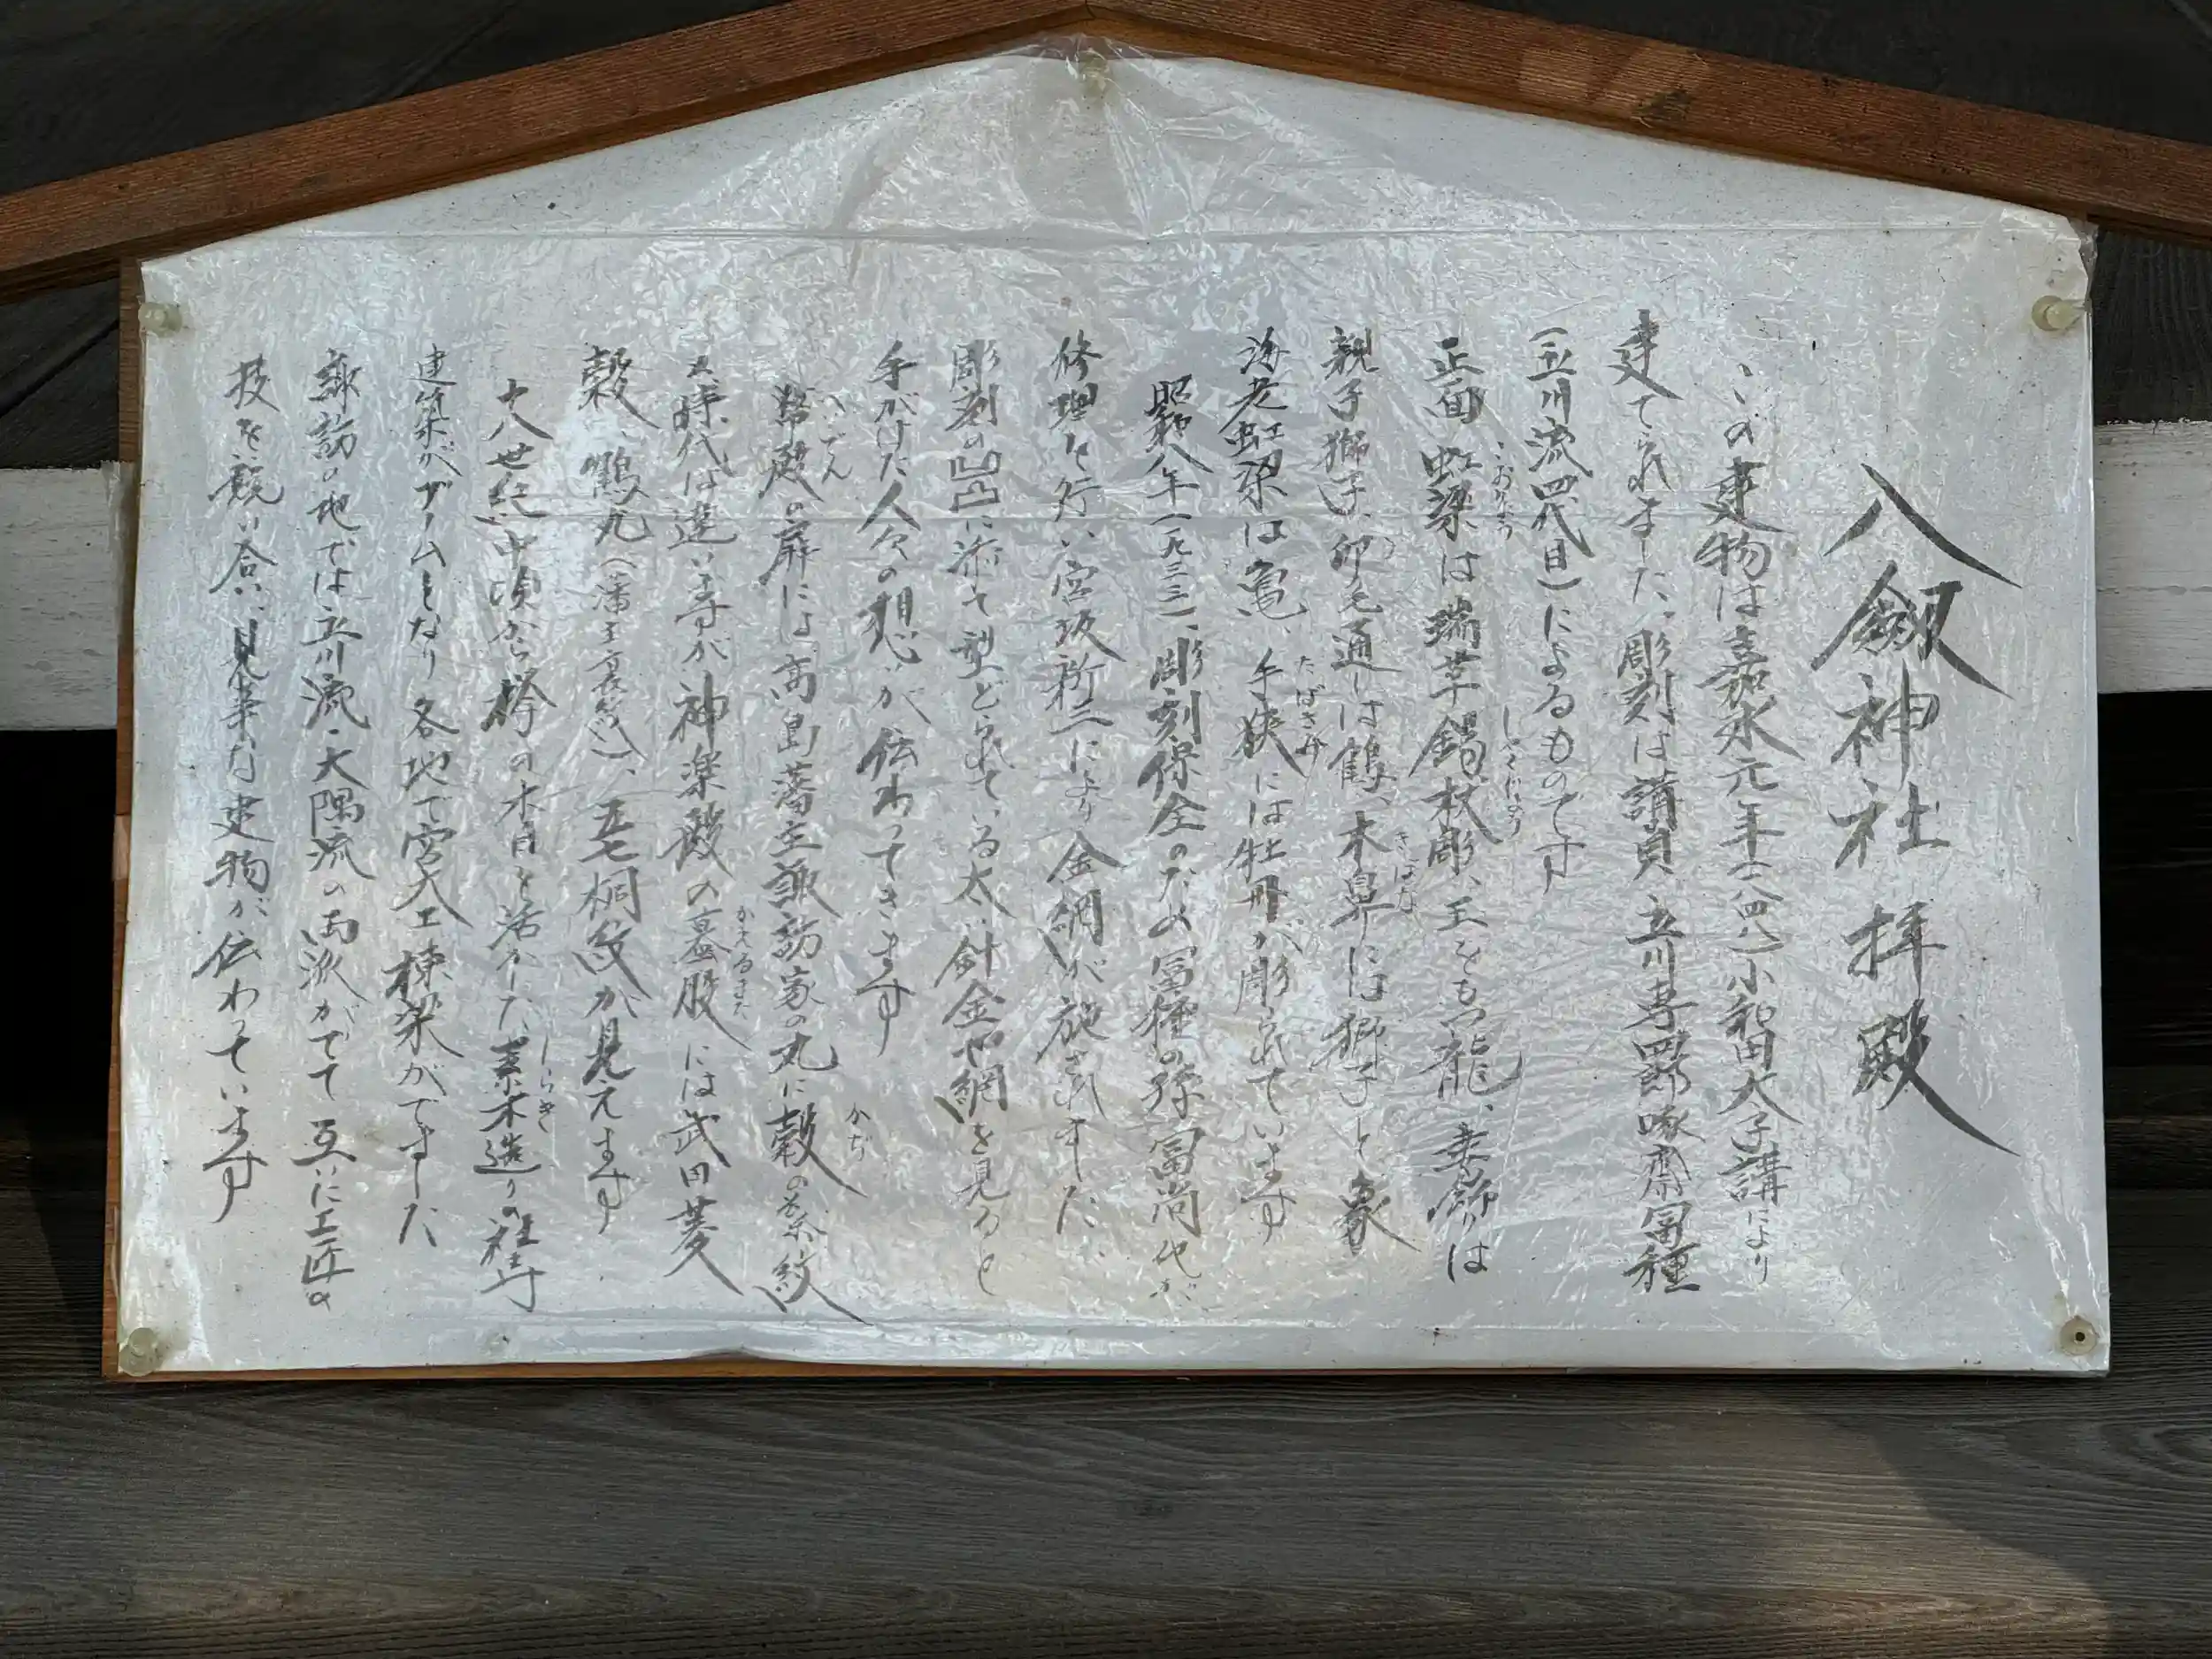 八剱神社 拝殿
この建物は嘉永元年(一八四八)小和田太子講により
建てられました。彫刻は請負 立川専四郎啄斎冨種
(立川流四代目)によるものです
正面 虹梁は瑞草錫杖彫、玉をもつ龍、妻飾りは
こおりょう
しゃくじょう
親子獅子、卯毛通しは鶴、木鼻には獅子と象
きばな
海老虹梁は亀、手狭には牡丹が彫られています
たばさみ
昭和八年(一九三三)、彫刻保全のため冨種の孫冨尚也が
修理を行い宮坂新三により金網が施されました
彫刻の凹凸に添って型どられている太い針金や網を見ると
手がけた人々の想いが伝わってきます
幣殿の扉には高島藩主諏訪家の丸に穀の葉紋
へいでん
かぢ
又時代は違いますが神楽殿の蟇股には武田菱
かえるまた
穀、鶴丸(藩主裏紋)、五七桐紋が見えます
十八世紀中頃から欅の木目を活かした素木造りの社寺
しらき
建築がブームとなり各地で宮大工棟梁がでました
諏訪の地では立川流・大隅流の両派がでて互いに工匠の
技を競い合い、見事な建物が伝わっています